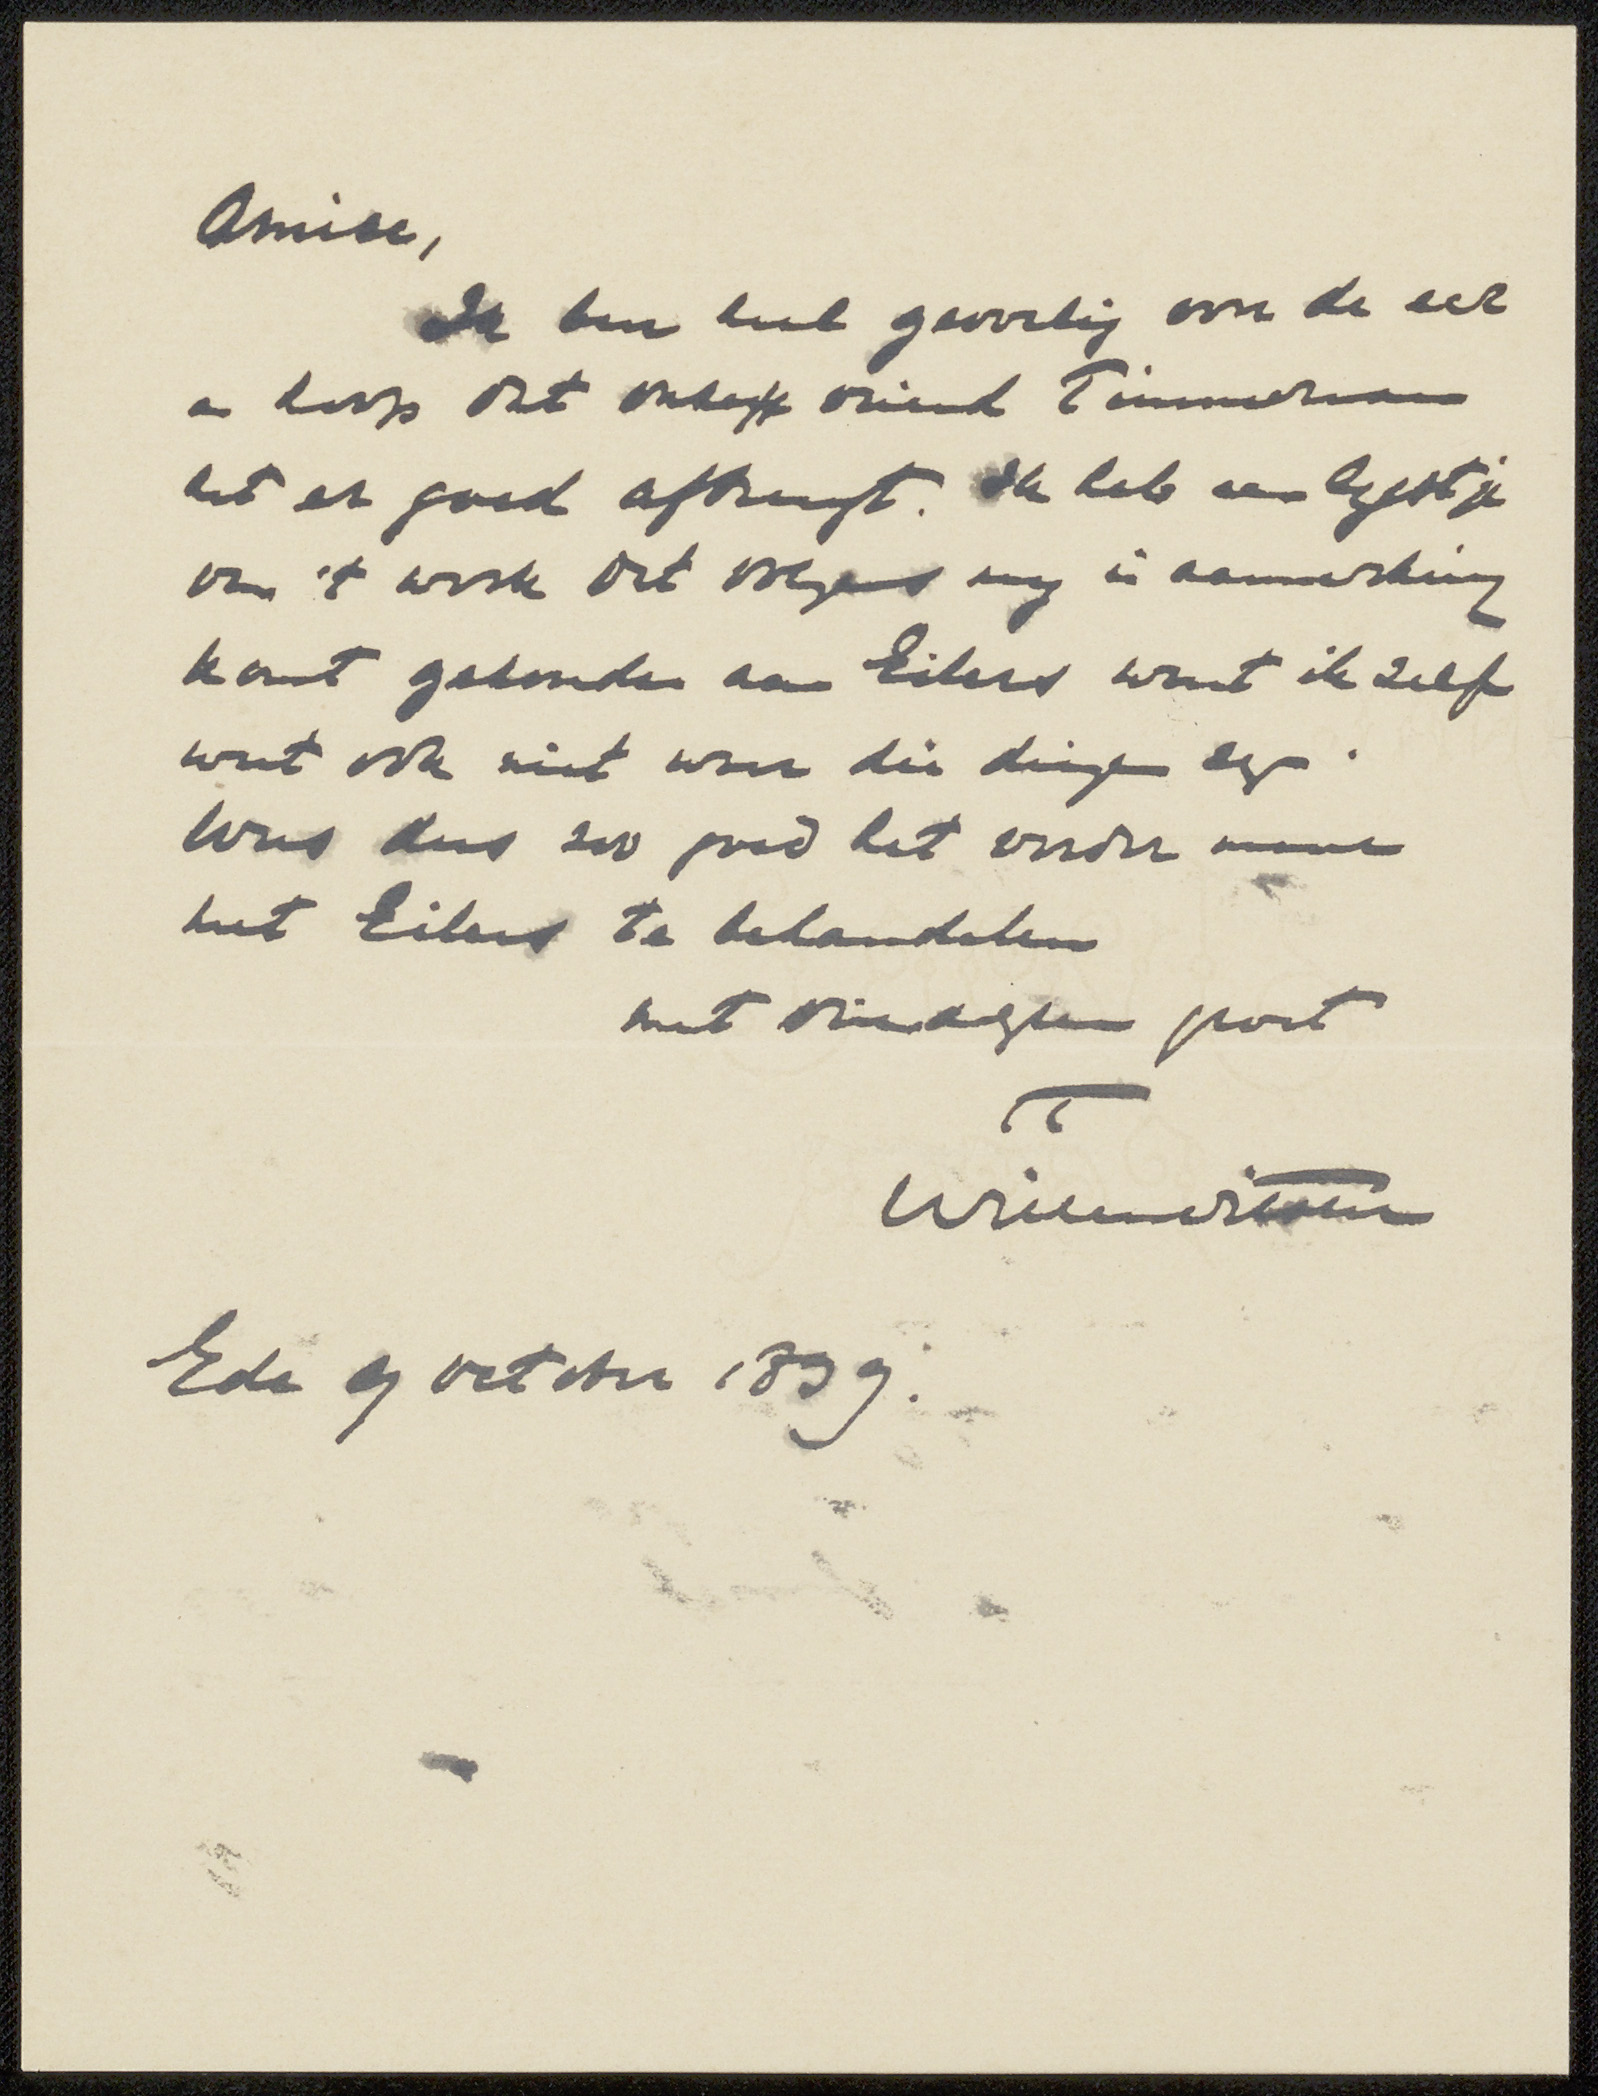 Amice,
Ik ben heel gevoelig voor de eer
en hoop dat onze vriend Timmerman
het er goed afbrengt. Ik heb een lijstje
van 't werk dat volgens mij in aanmerking
komt gezonden aan Eilers want ik zelf
weet ook niet waar die dingen zijn.
Wees dus zoo goed het verder maar
met Eilers te behandelen
met vriendelyken groet
tt
Willem Witsen
Ede 9 october 1899.